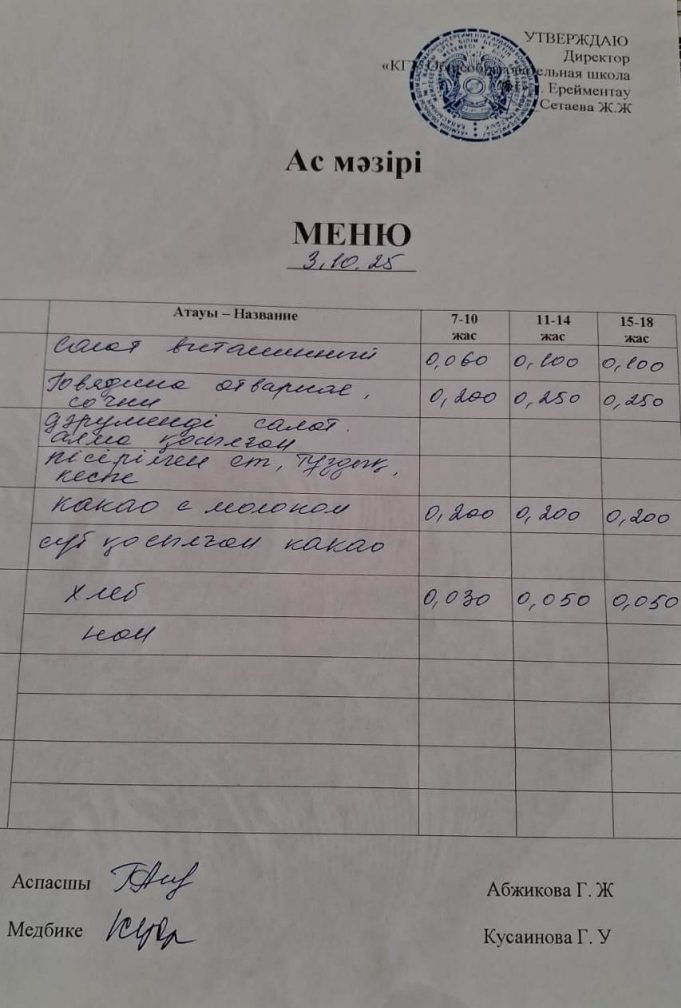 УТВЕРЖДАЮ
Директор
«КГУ Общеобразовательная школа
г. Ерейментау
Сетаева Ж.Ж
Ас мәзірі
МЕНЮ
3.10.25
Атауы – Название 7-10 жас 11-14 жас 15-18 жас
Салат витаминный 0,060 0,100 0,100
Говядина отварная, 0,200 0,250 0,250
сочни
Дәруменді салат.
алма қосылған
пісірілген ет, тұздық,
кеспе
какао с молоком 0,200 0,200 0,200
сүт қосылған какао
хлеб 0,030 0,050 0,050
нан
Аспасшы Абжикова Г. Ж
Медбике Кусаинова Г. У